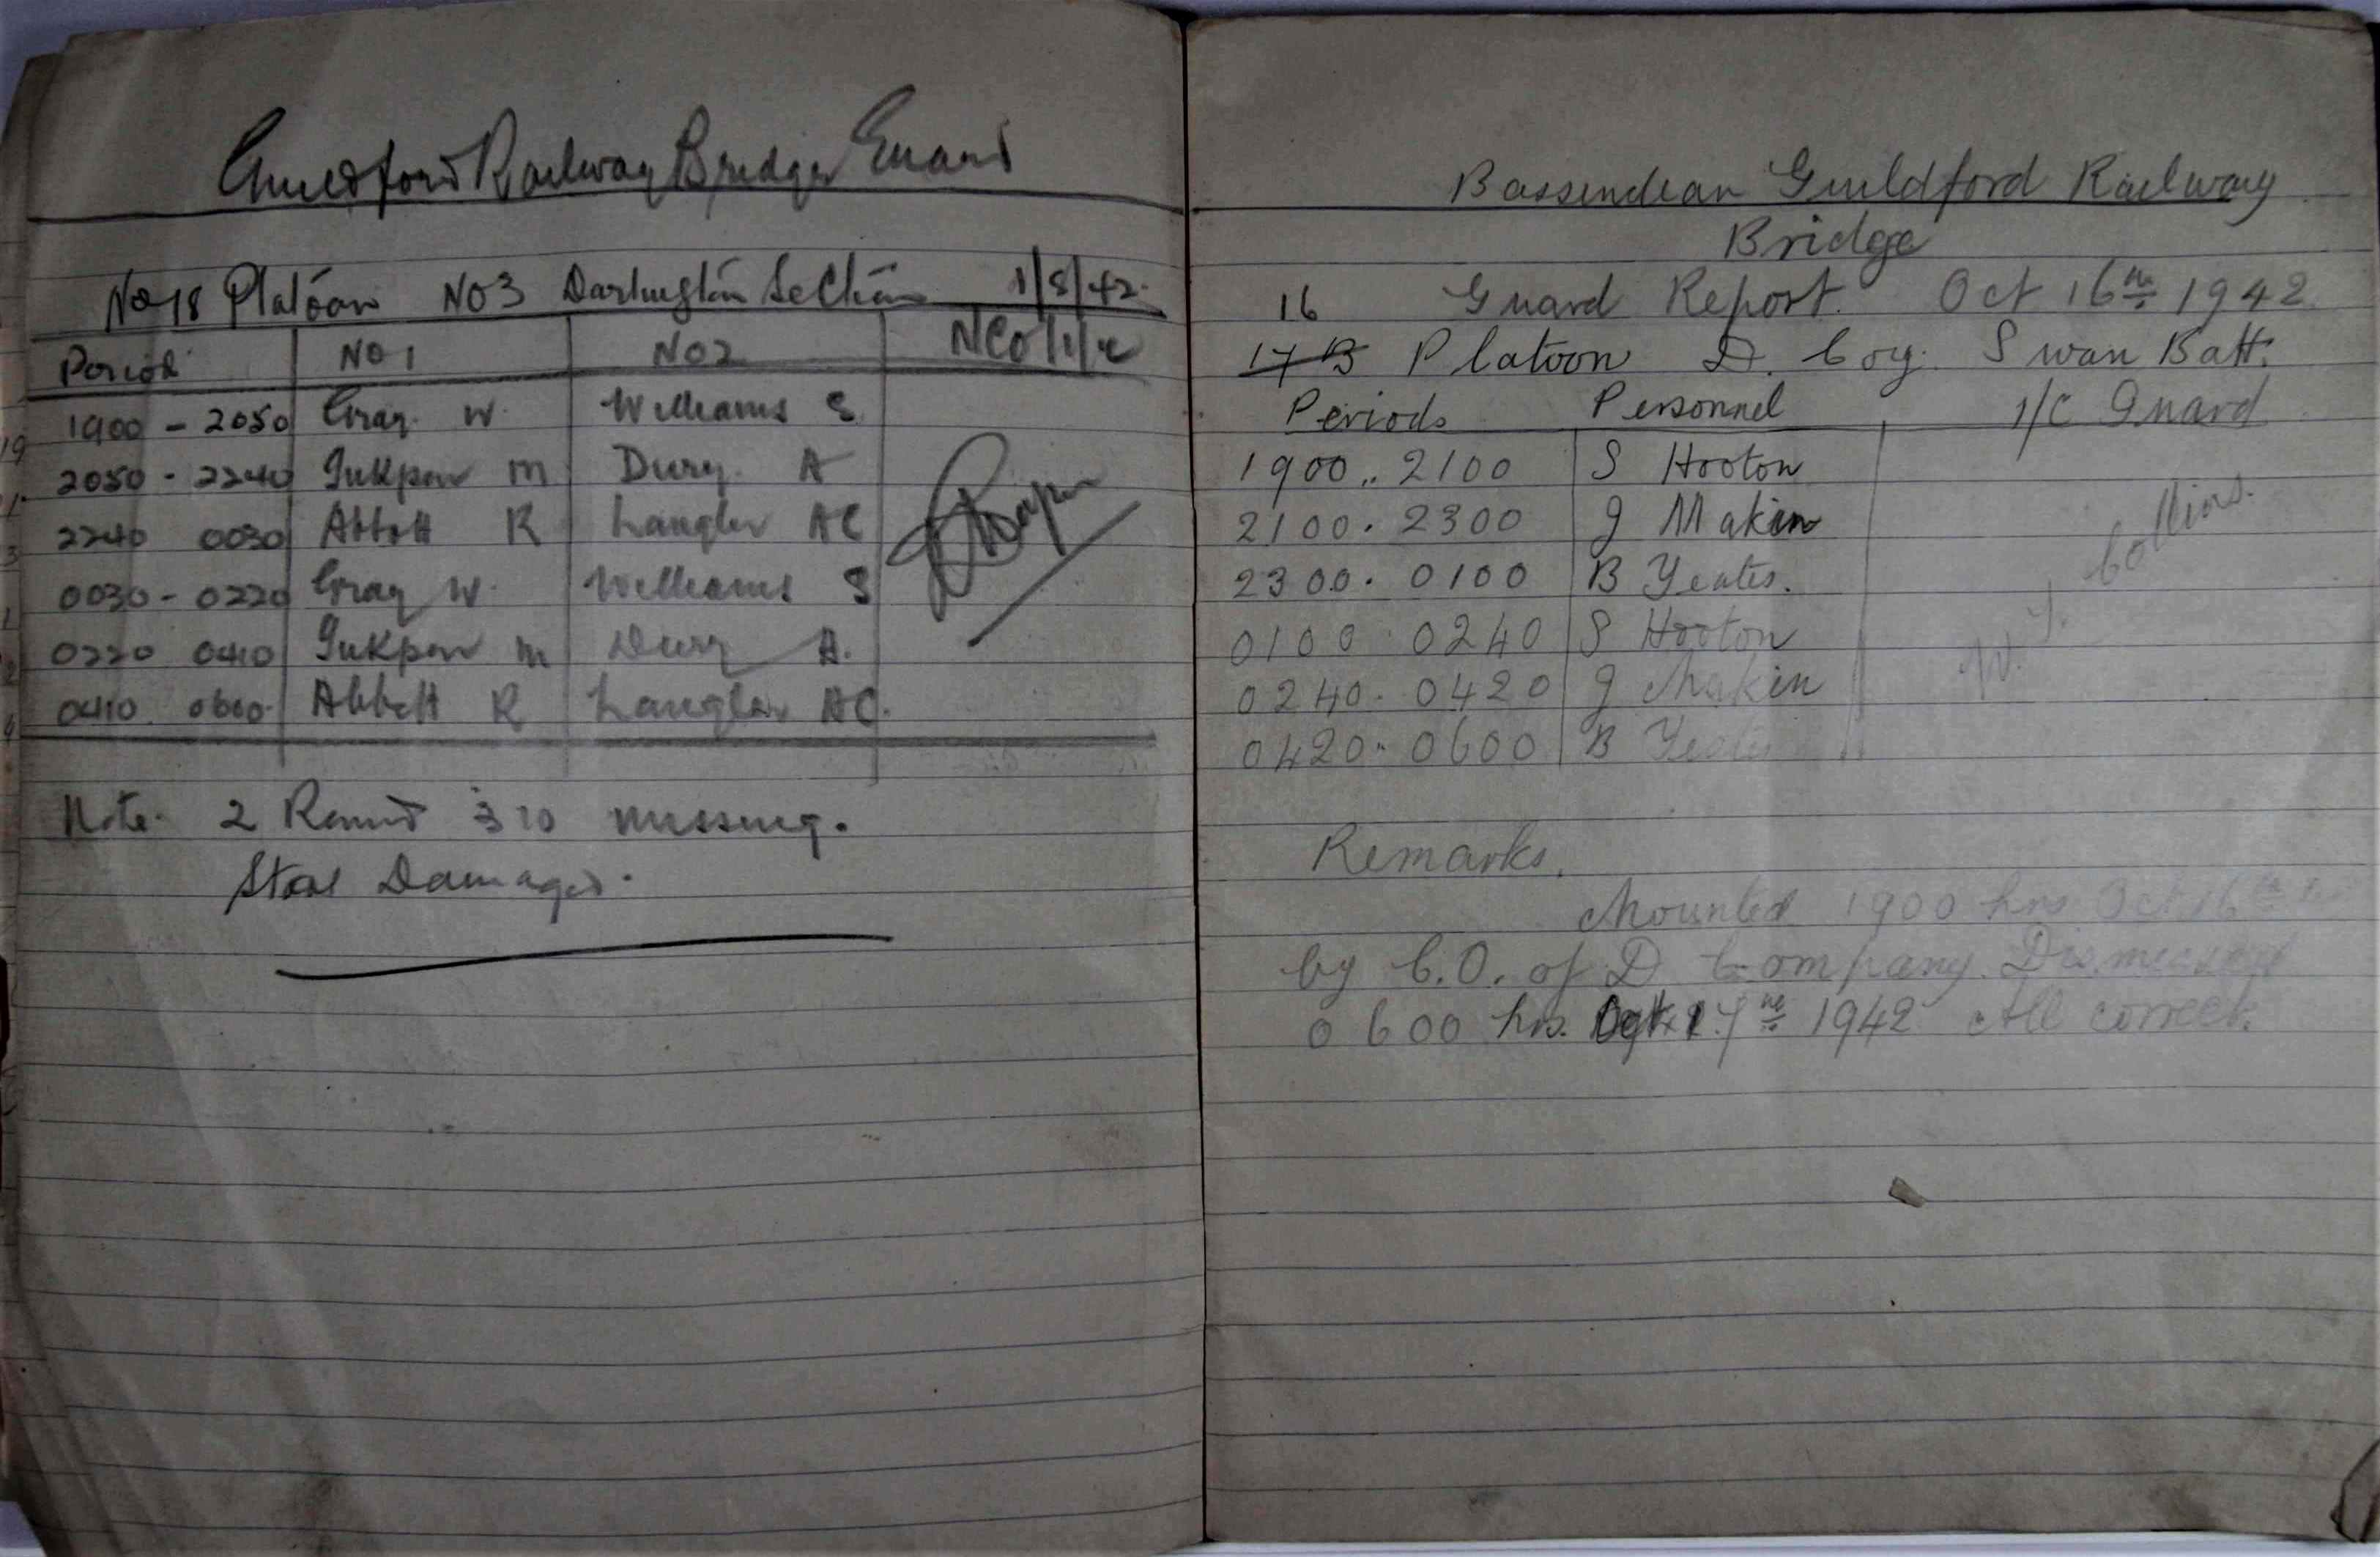 Guildford Railway Bridge Guard
No 18 Platoon No 3 Darlington Section 1/8/42.
Period No 1 No 2 NCO I/C
1900 - 2050 Gray. W. Williams S.
2050 - 2240 Inkpen M Dury. A
2240 0030 Abbott R Langler AC
0030 - 0220 Gray W. Williams S
0220 0410 Inkpen M Dury A.
0410 0600. Abbott R Langler AC.
Note. 2 Round 310 missing.
Damaged.
Bassendean Guildford Railway
Bridge
16 Guard Report. Oct 16th 1942
17 B Platoon D. Coy. Swan Batt.
Periods Personnel I/C Guard
1900 .. 2100 S Hooton
2100 . 2300 J Makin
2300 . 0100 B Yeates.
0100 . 0240 S Hooton
0240 . 0420 J Makin
0420 . 0600 B Yeates
W. J. Collins.
Remarks.
Mounted 1900 hrs Oct 16th
by C.O. of D Company. Dismissed
0600 hrs. Oct 17th 1942 All correct.